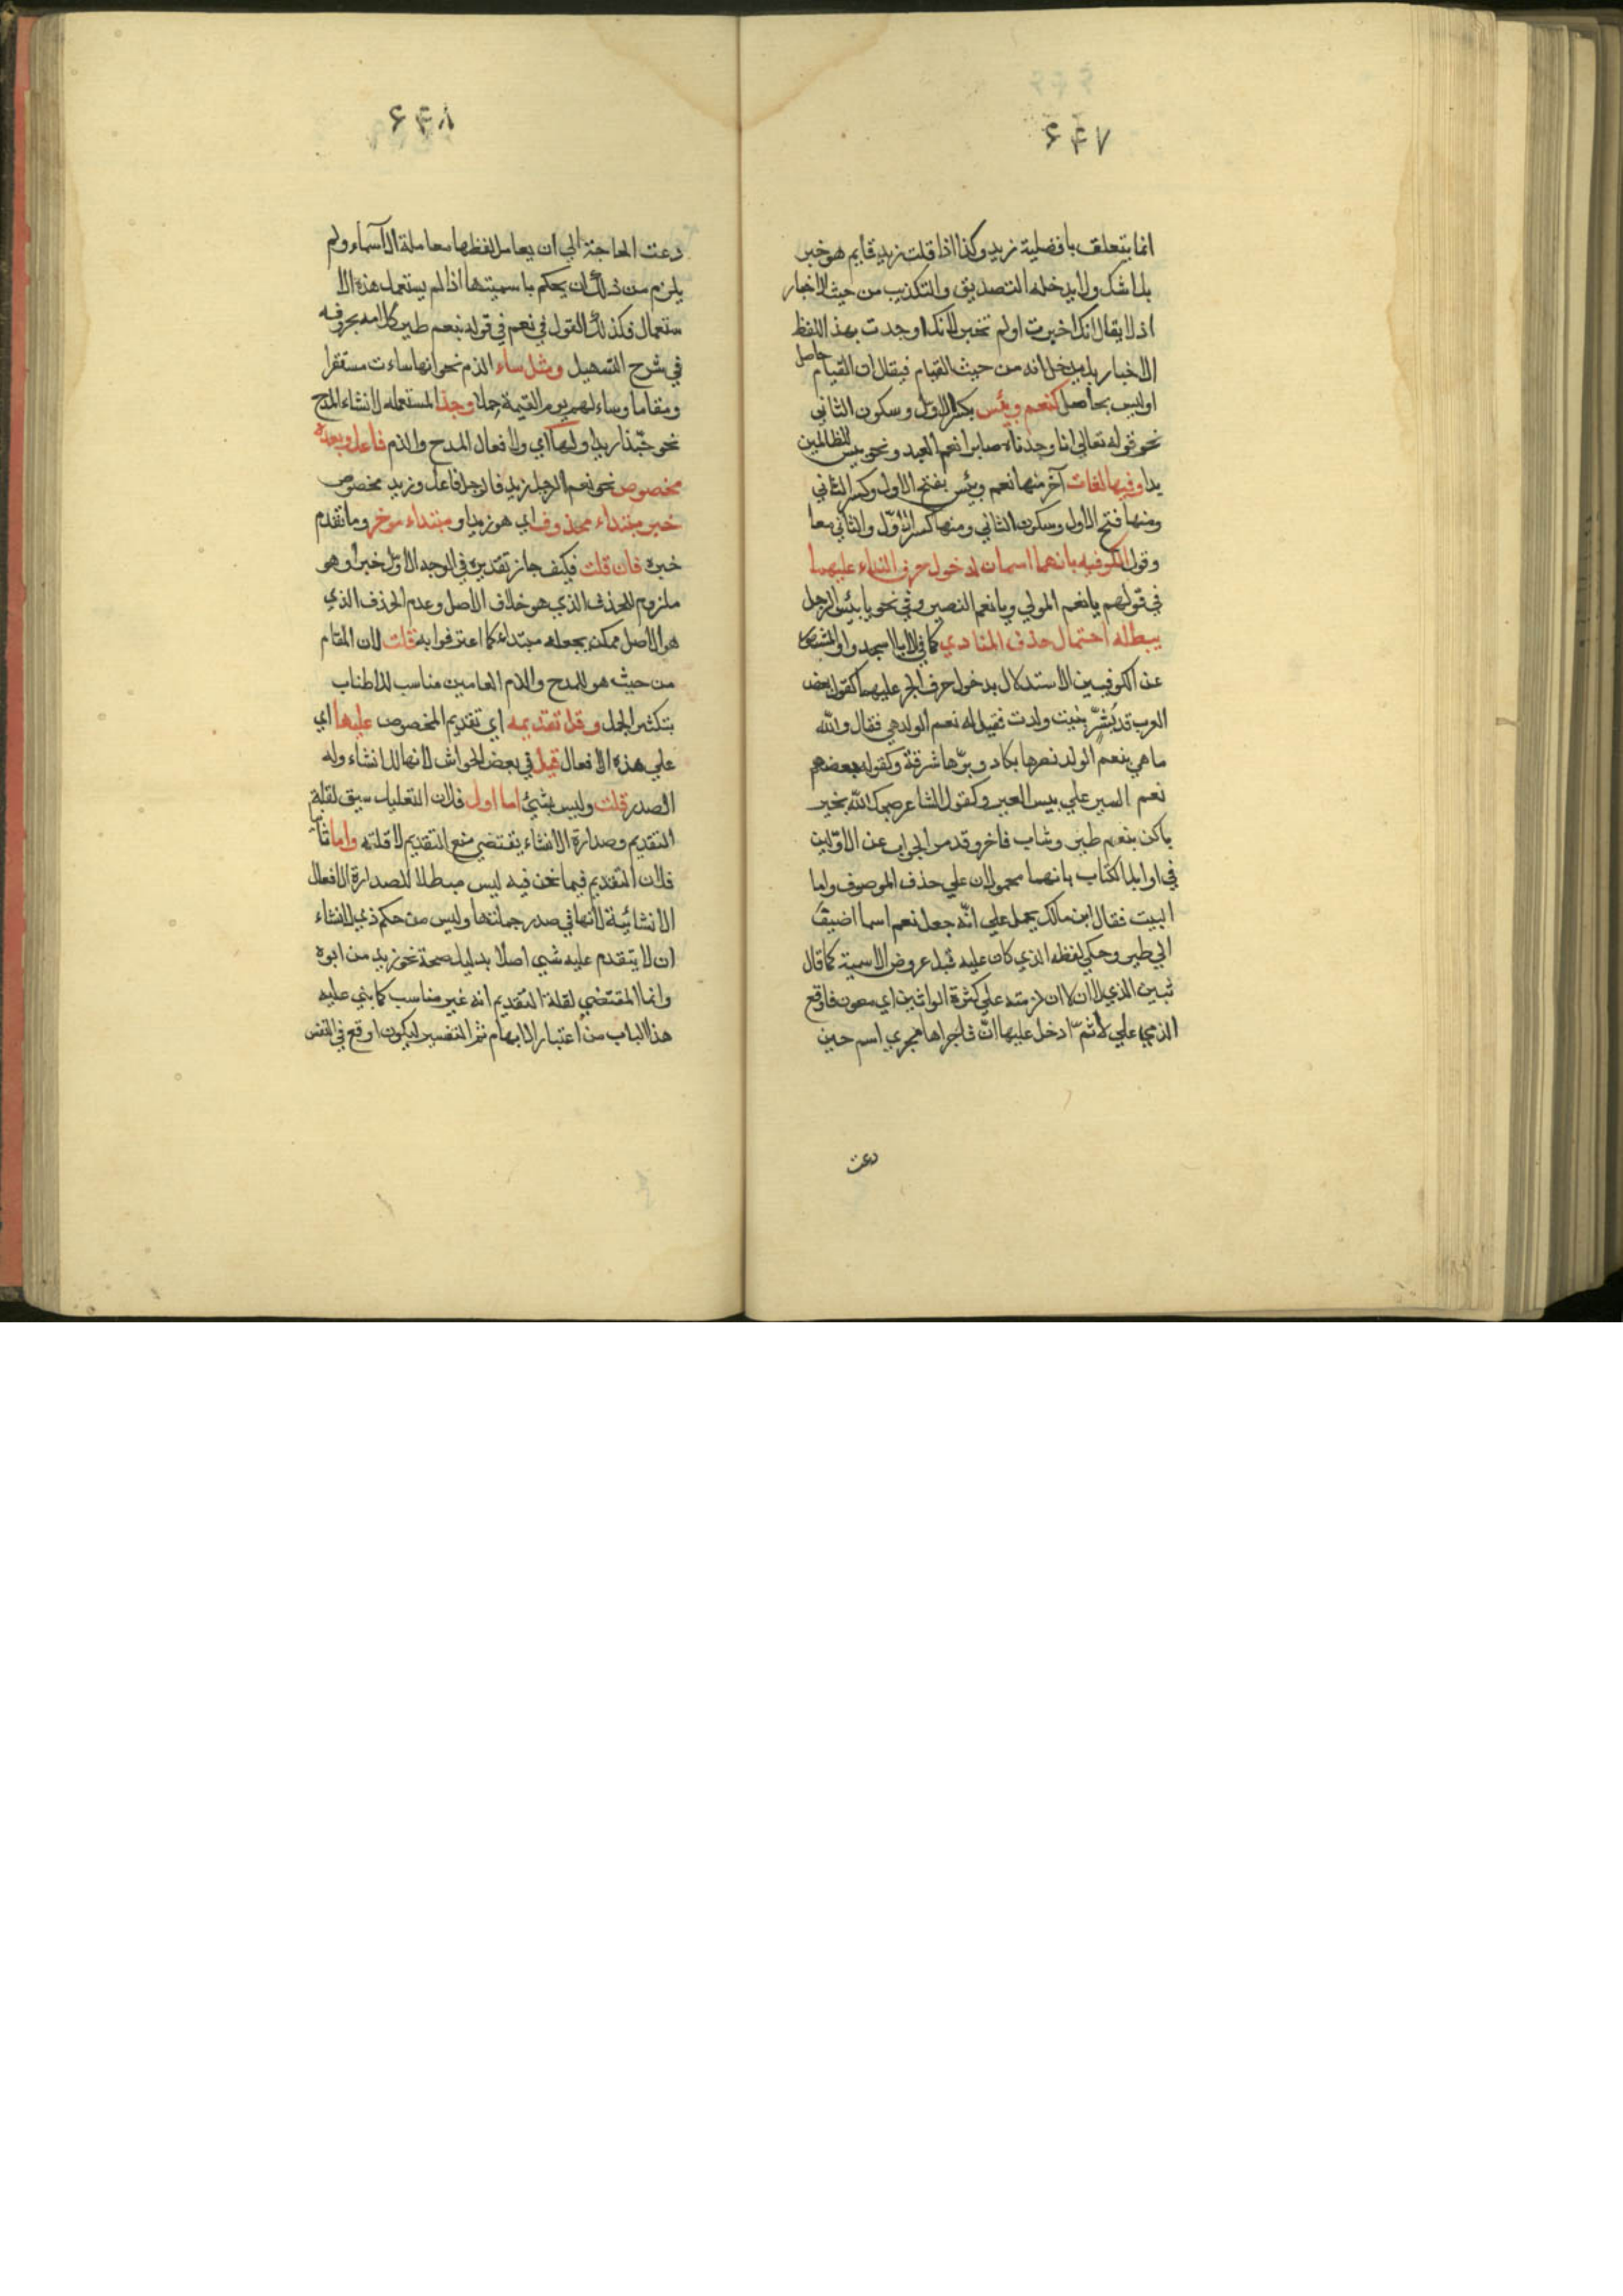 ۶۴۷
انما يتعلق بافضلية زيد وكذا اذا قلت زيد قايم هو خبر
بلا شك ولا يدخله التصديق والتكذيب من حيث الاخبار
اذ لا يقال انك اخبرت او لم تخبر لانك اوجدت بهذ اللفظ
الاخبار بل يدخل انه من حيث القيام فيقال ان القيام حاصل
او ليس بحاصل كنعم وبئس بكسر الاول وسكون الثاني
نحو قوله تعالي انا وجدناه صابرا نعم العبد ونحو بئس للظالمين
بدلا وفيها لغات آخر منها نعم وبئس بفتح الاول وكسر الثاني
ومنها فتح الاول وسكون الثاني ومنها كسر الاول والثاني معا
وقول الكوفيه بانهما اسمان لدخول حرف النداء عليهما
في قولهم يا نعم المولي ويا نعم النصير وفي نحو يا بئس الرجل
يبطله احتمال حذف المنادي كما في الا يا اسجدوا
عن الكوفيين الاستدلال بدخول حرف الجر عليهما كقول بعض
العرب قد بُشّر بنبت ولدت فقيل له نعم الولد هي فقال والله
ما هي بنعم الولد نصرها بكاد وبرّها شرقة وكقول بعضهم
نعم السير علي بيس العير وكقول الشاعر صبحك الله بخير
باكن بنعم طير وشاب فاخر وقد مر الجواب عن الاوّلين
في اوايل الكتاب بانهما محمولان علي حذف الموصوف واما
البيت فقال ابن مالك يحمل علي انّه جعل نعم اسما اضيف
الي طير وحكي لفظه الذي كان عليه قبل عروض الاسمية كما قال
الذمي علي لا ثمّ ادخل عليها انّ فاجراها مجري اسم حين
دعت
۶۴۸
دعت الحاجة الي ان يعامل لفظها معاملة الآسماء ولم
يلزم من ذلك ان يحكم باسميتها اذا لم يستعمل هذه الا
ستعمال فكذلك القول في نعم في قوله بنعم طير كلامه بحروفه
في شرح التسهيل ومثل ساء الذم نحو انها ساءت مستقرا
ومقاما وساء لهم يوم القيمة حملا وحبذا المستعمله لانشاء المدح
نحو حبّذا زيد ولها اي ولافعال المدح والذم فاعل وبعده
مخصوص نحو نعم الرجل زيد فالرجل فاعل وزيد مخصوص
خبر مبتداء محذوف اي هو زيد او مبتداء موخر وما تقدم
خبره فان قلت فكيف جاز تقديره في الوجه الاوّل خبرا وهو
ملزوم للحذف الذي هو خلاف الاصل وعدم الحذف الذي
هو الاصل ممكن بجعله مبتداء كما اعترفوا به قلت لان المقام
من حيث هو المدح والذم العامين مناسب للاطناب
بتكثير الجمل وقل تقديمه اي تقديم المخصوص عليها اي
علي هذه الافعال قيل في بعض الحواش لانها للانشاء وله
الصدر قلت وليس بشيئ اما اول فلان التعليل سيق لقلة
التقديم وصدارة الانشاء يقتضي منع التقديم لا قلته واما ثا
فلان التقديم فيما نحن فيه ليس مبطلا للصدارة الافعال
الانشائية لانها في صدر جملتها وليس من حكم ذي الانشاء
ان لا يتقدم عليه شيي اصلا بدليل صحة نحو زيد من ابوه
وانما المقتضي لقلة التقديم انه غير مناسب كما بني عليه
هذا الباب من اعتبار الابهام ثم التفسير ليكون اوقع في النفس